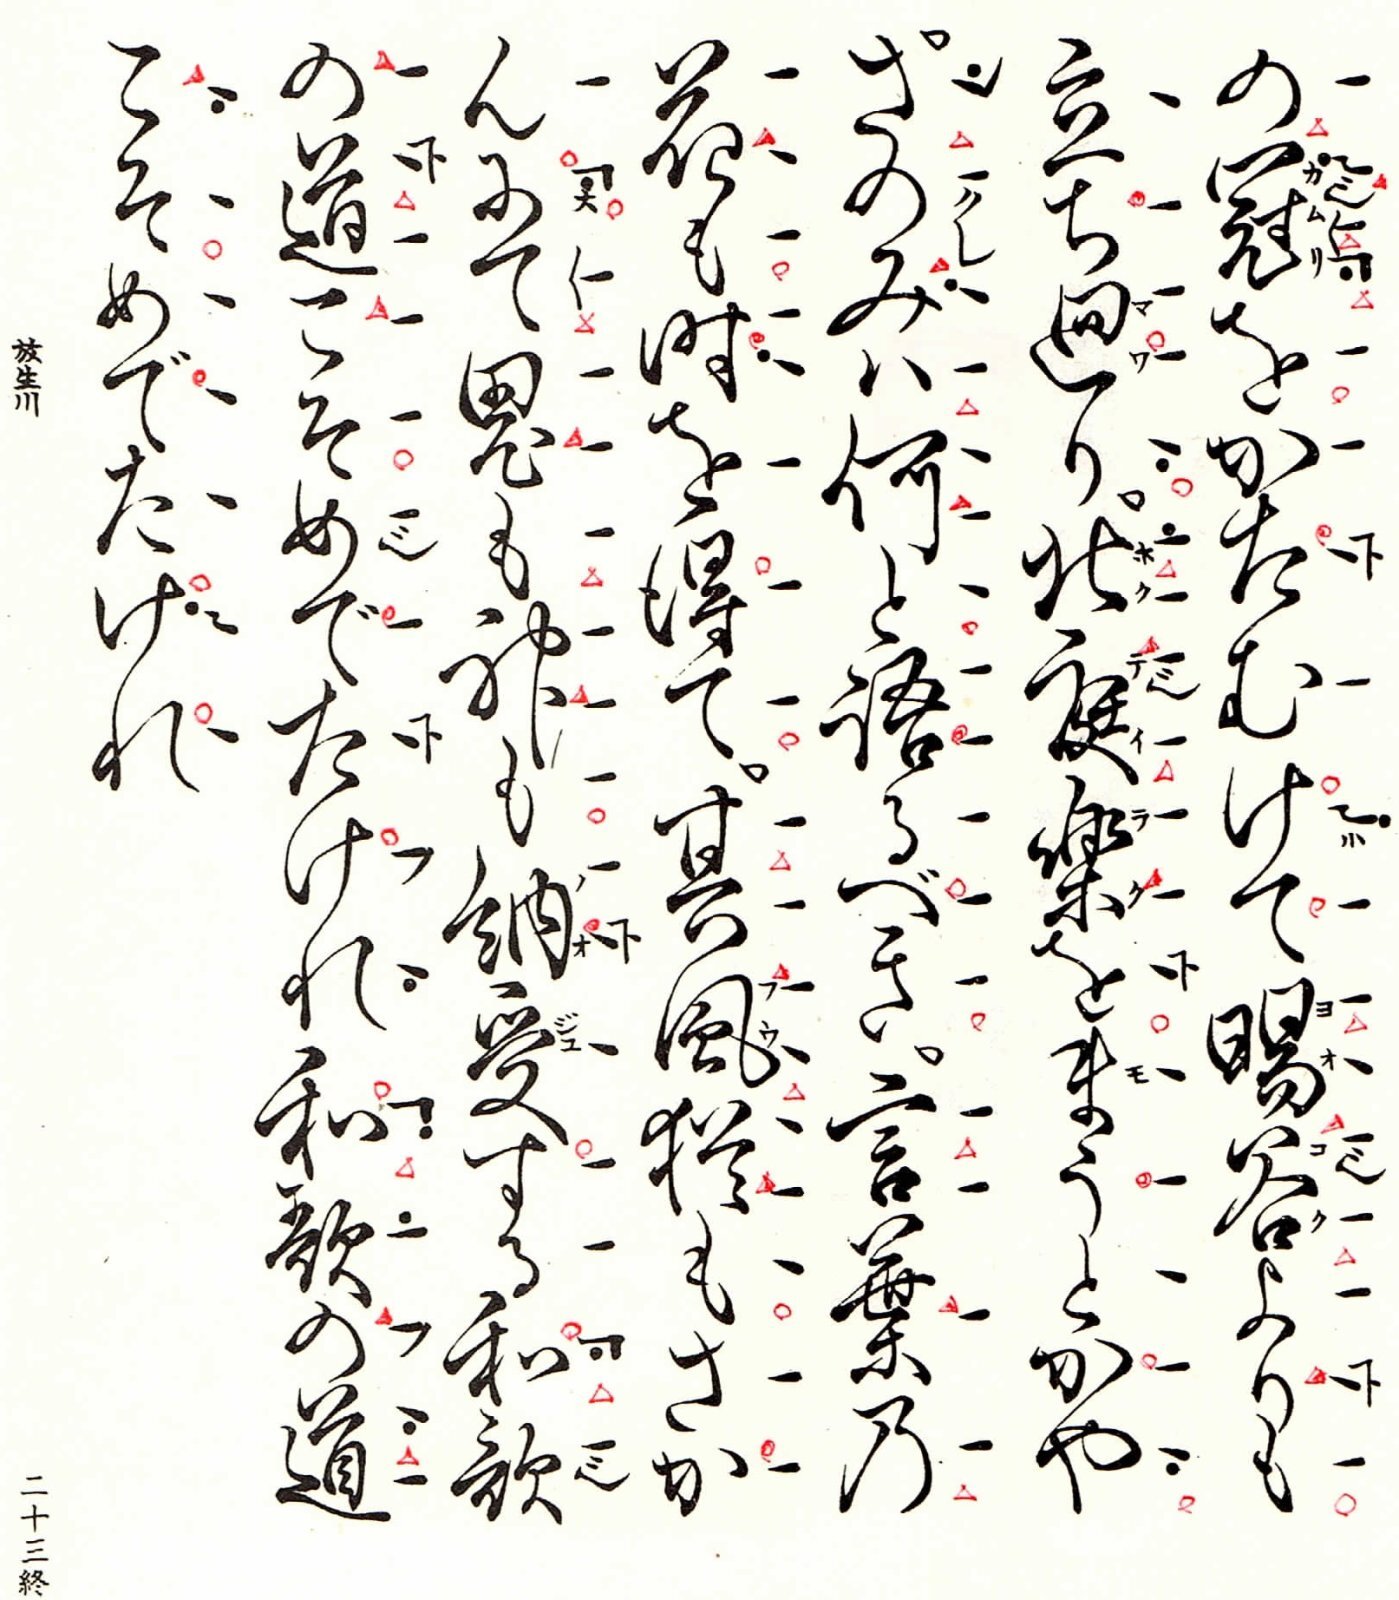 の冠をかたむけて暘谷よりも
立ち廻り。北庭楽をまうとかや
さのみハ何と語るべき。言葉乃
花も時を得て。其風猶もさか
んにて鬼も神も納受する和歌
の道こそめでたけれ和歌の道
こそめでたけれ
放生川
二十三終